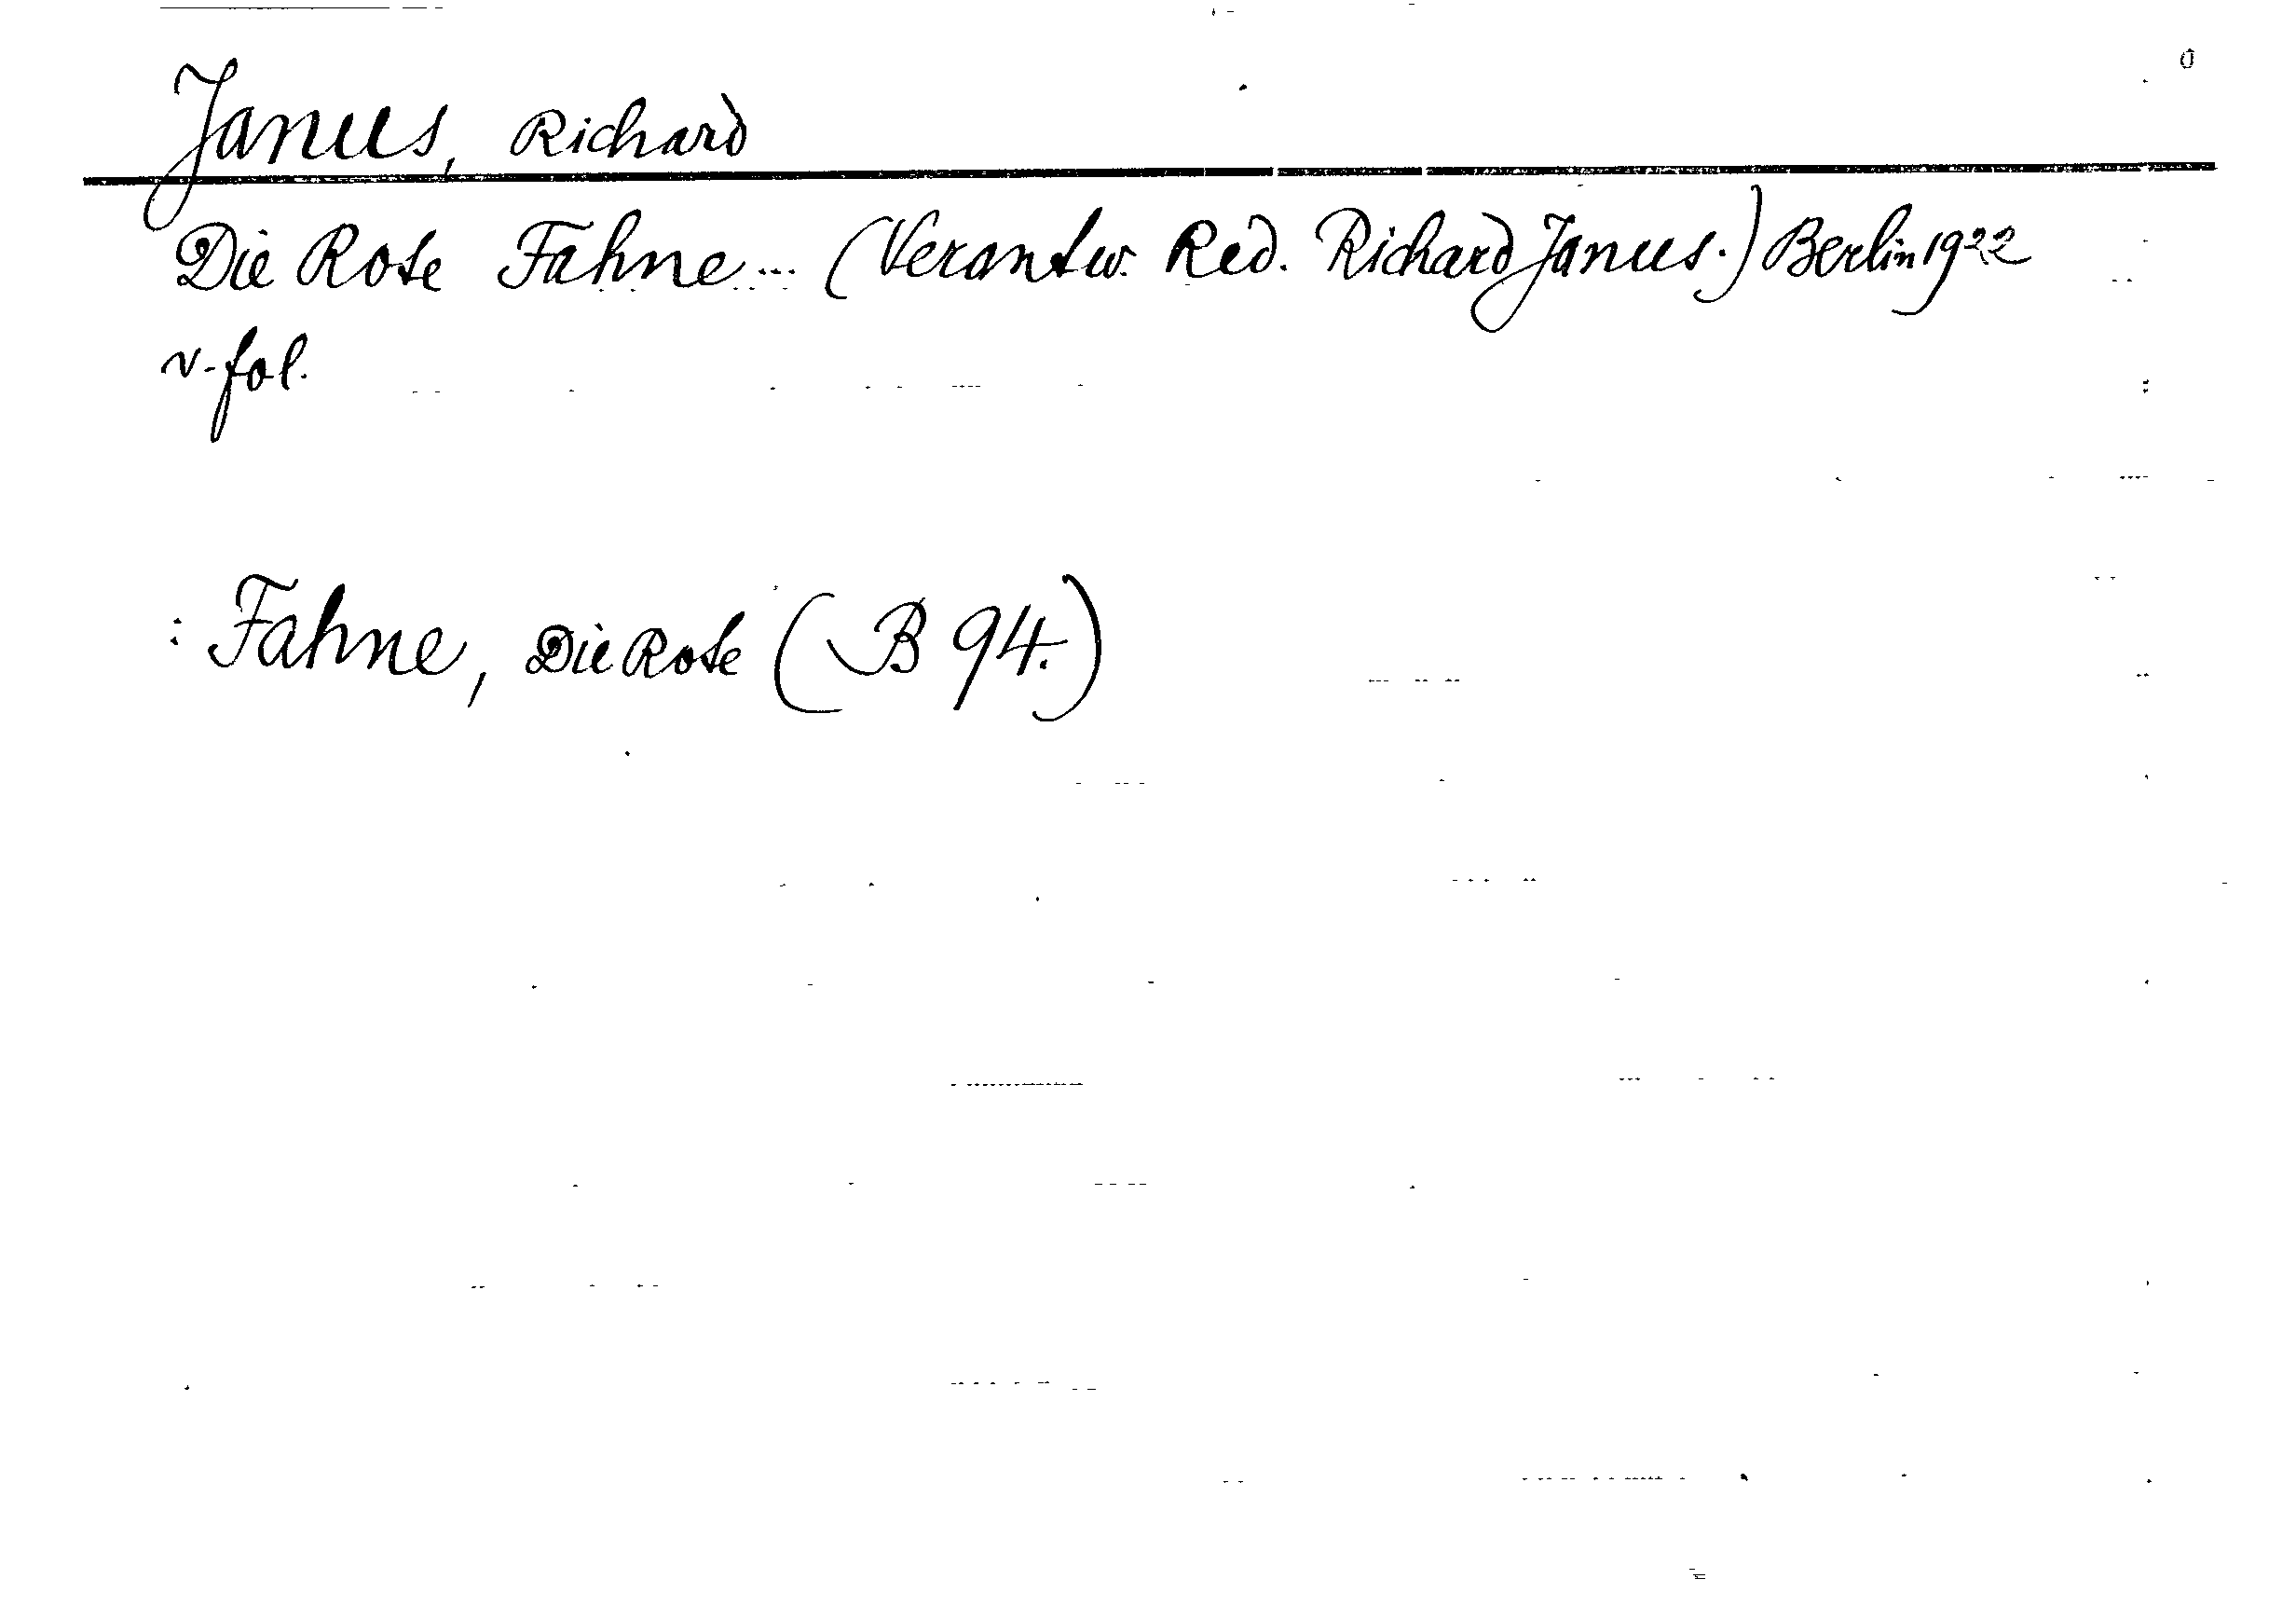 Janus, Richard
Die Rote Fahne... (Verantw. Red. Richard Janus.) Berlin 1922
v-fol.
: Fahne, Die Rote (B 94.)